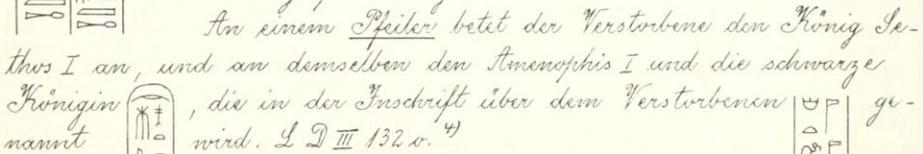 An einem Pfeiler betet der Verstorbene den König Se-
thos I an, und an demselben den Amenophis I und die schwarze
Königin , die in der Inschrift über dem Verstorbenen ge-
nannt wird. L D III 132 v. 4)